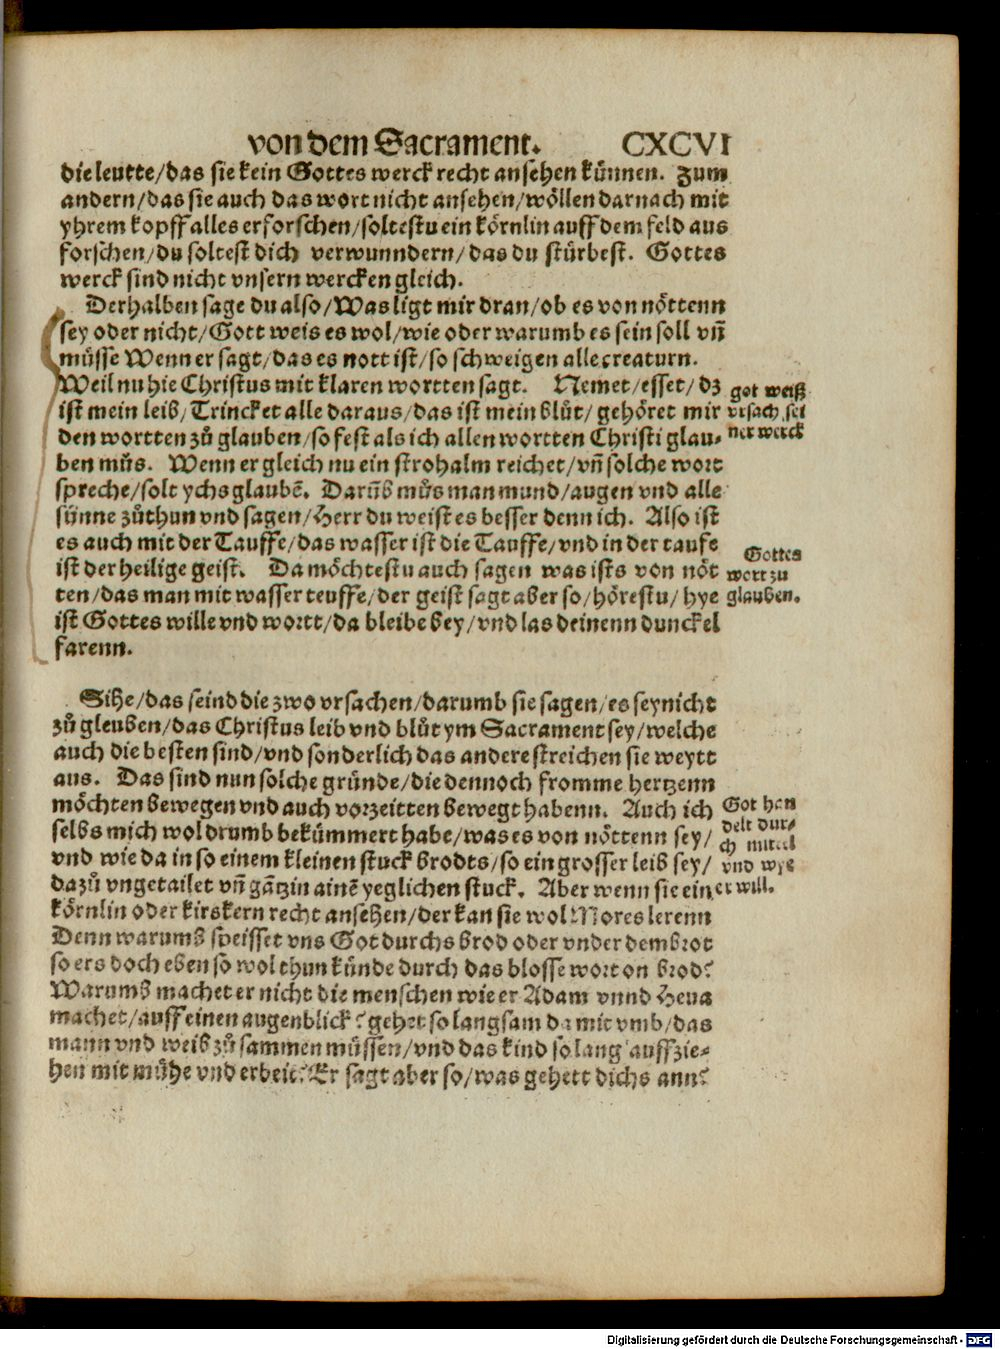 von dem Sacrament. CXCVI
die leutte/das sie kein Gottes werck recht ansehen künnen. Zum
andern/das sie auch das wort nicht ansehen/wöllen darnach mit
yhrem kopff alles erforschen/soltestu ein körnlin auff dem feld aus
forschen/du soltest dich verwunndern/das du stürbest. Gottes
werck sind nicht vnsern wercken gleich.
Derhalben sage du also/Was ligt mir dran/ob es von nöttenn
sey oder nicht/Gott weis es wol/wie oder warumb es sein soll vñ
müsse Wenn er sagt/das es nott ist/so schweigen alle creaturn.
Weil nu hie Christus mit klaren wortten sagt. Nemet/esset/dz
ist mein leib/Trincket alle daraus/das ist mein blůt/gehöret mir
den wortten zů glauben/so fest als ich allen wortten Christi glau-
ben můs. Wenn er gleich nu ein strohalm reichet/vñ solche wort
spreche/solt ychs glaubẽ. Darũb můs man mund/augen vnd alle
sünne zůthun vnd sagen/Herr du weist es besser denn ich. Also ist
es auch mit der Tauffe/das wasser ist die Tauffe/vnd in der taufe
ist der heilige geist. Da möchtestu auch sagen was ists von nöt
ten/das man mit wasser teuffe/der geist sagt aber so/hörestu/hye
ist Gottes wille vnd wortt/da bleibe bey/vnd las deinenn dunckel
farenn.
got weiß
vrsach sei
ner werck
Gottes
wort zu
glauben.
Sihe/das seind die zwo vrsachen/darumb sie sagen/es sey nicht
zů gleuben/das Christus leib vnd blůt ym Sacrament sey/welche
auch die besten sind/vnd sonderlich das andere streichen sie weytt
aus. Das sind nun solche gründe/die dennoch fromme hertzenn
möchten bewegen vnd auch vorzeitten bewegt habenn. Auch ich
selbs mich wol drumb bekümmert habe/was es von nöttenn sey/
vnd wie da in so einem kleinen stuck brodts/so ein grosser leib sey/
dazů vngetailet vñ gãtz in ainẽ yeglichen stuck. Aber wenn sie ein
körnlin oder kirskern recht ansehen/der kan sie wol Mores lerenn
Denn warumb speisset vns Got durchs brod oder vnder dem brot
so ers doch eben so wol thun künde durch das blosse wort on brod?
Warumb machet er nicht die menschen wie er Adam vnnd Heua
machet/auff einen augenblick? gehet so langsam da mit vmb/das
mann vnd weib zů sammen müssen/vnd das kind so lang auffzie-
hen mit můhe vnd erbeit? Er sagt aber so/was gehett dichs ann?
Got han
delt dur-
ch mittel
vnd wye
er will.
Digitalisierung gefördert durch die Deutsche Forschungsgemeinschaft - DFG